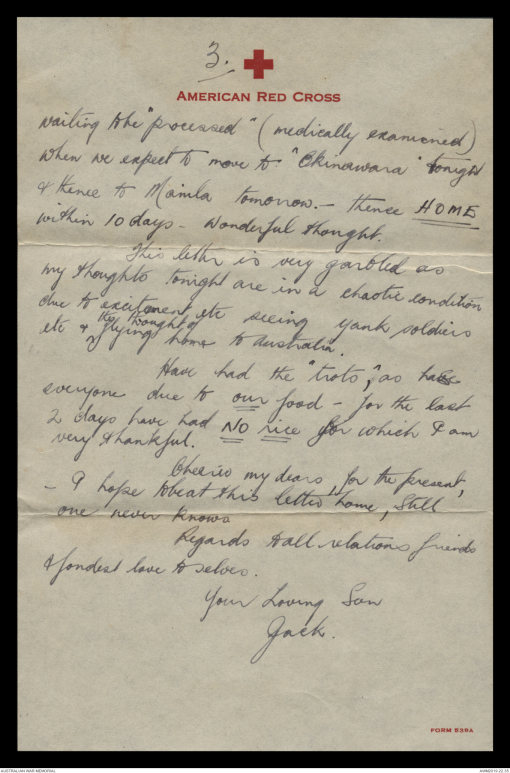 3.
AMERICAN RED CROSS
waiting to be "processed" (medically examined)
when we expect to move to "Okinawara" tonight
& thence to Manila tomorrow. – thence HOME
within 10 days – Wonderful thought.
This letter is very garbled as
my thoughts tonight are in a chaotic condition
due to excitement etc seeing yank soldiers
etc & the thought of flying home to Australia.
Have had the "trots", as has
everyone due to our food – for the last
2 days have had NO rice for which I am
very thankful.
Cheerio my dears, for the present,
– I hope to beat this letter home, still
one never knows
Regards to all relations friends
& fondest love to selves.
Your Loving Son
Jack.
FORM 539A
AUSTRALIAN WAR MEMORIAL